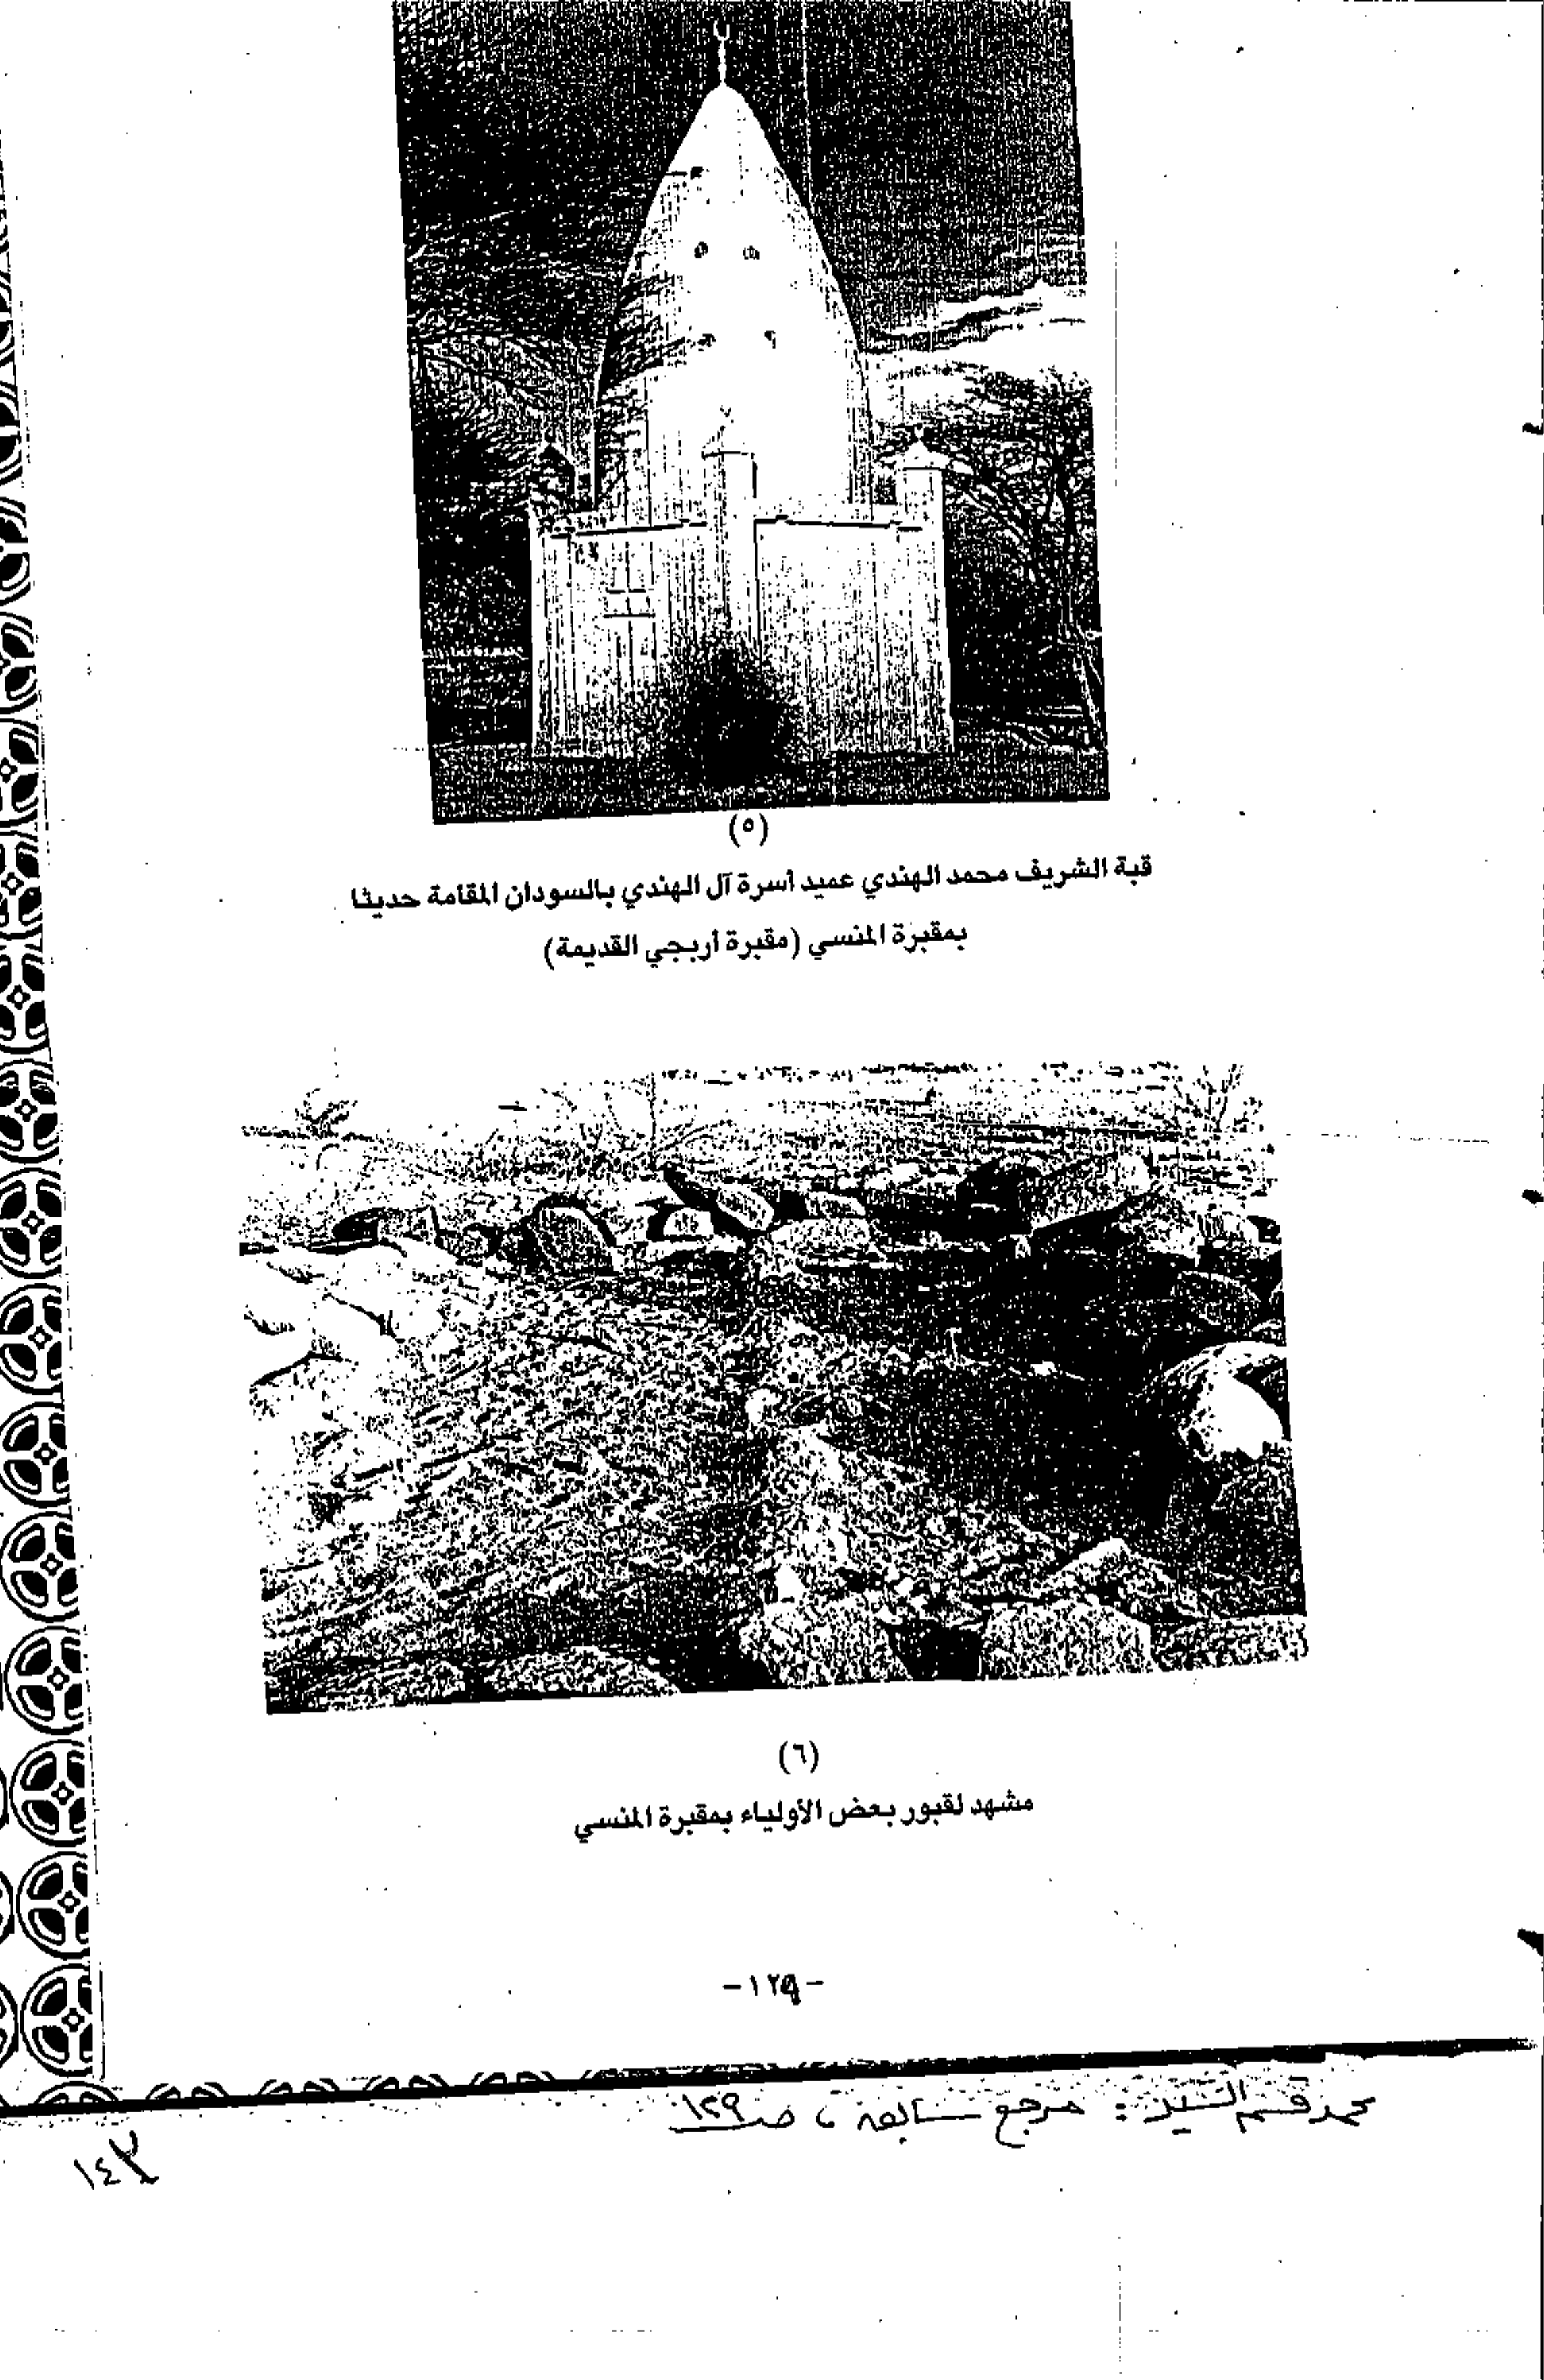 (٥)
قبة الشريف محمد الهندي عميد أسرة آل الهندي بالسودان المقامة حديثا
بمقبرة المنسي (مقبرة أربجي القديمة)
(٦)
مشهد لقبور بعض الأولياء بمقبرة المنسي
-١٢٩-
محمد قسم السيد : مرجع سابق ، ص ١٢٩
١٤٣